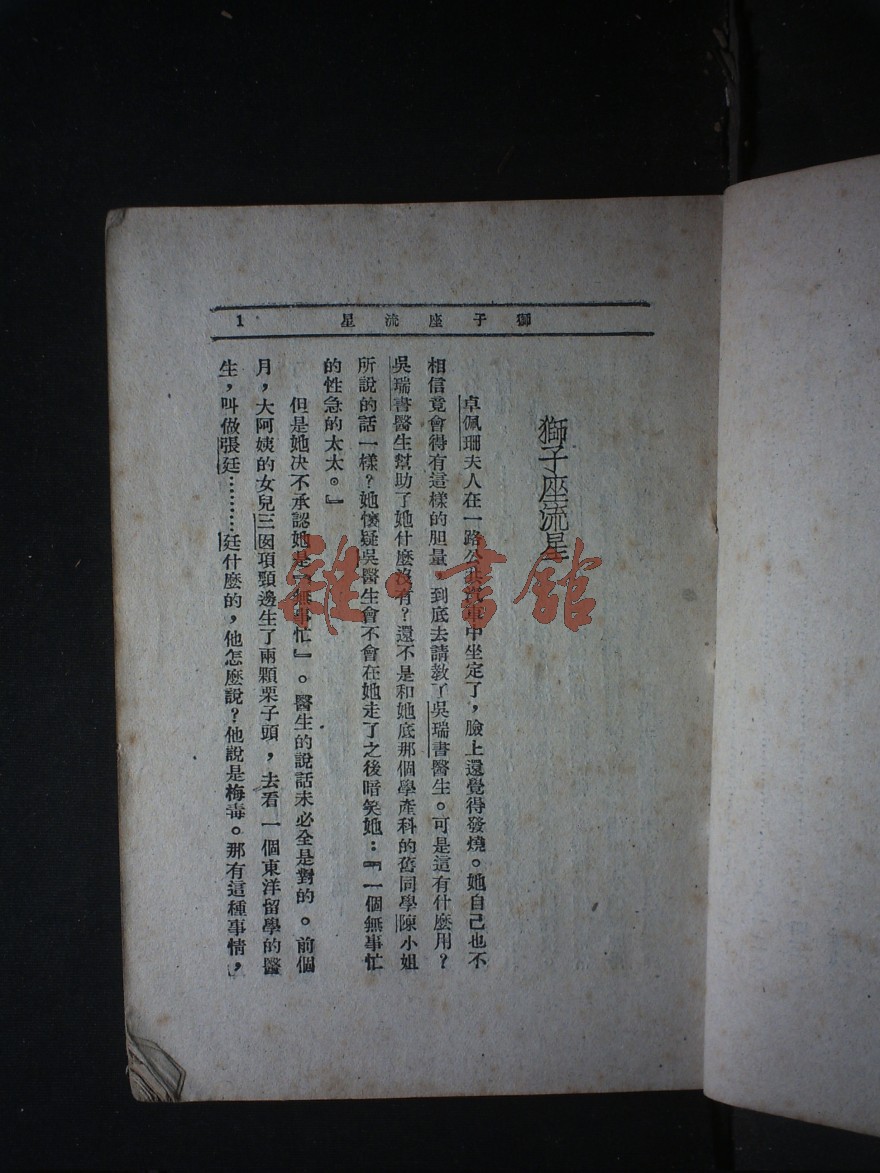 獅子座流星
1
獅子座流星
卓佩珊夫人在一路公共汽車中坐定了，臉上還覺得發燒。她自己也不
相信竟會得有這樣的胆量，到底去請敎了吳瑞書醫生。可是這有什麼用？
吳瑞書醫生幫助了她什麼沒有？還不是和她底那個學產科的舊同學陳小姐
所說的話一樣？她懷疑吳醫生會不會在她走了之後暗笑她：『一個無事忙
的性急的太太。』
但是她决不承認她是『無事忙』。醫生的說話未必全是對的。前個
月，大阿姨的女兒三囡項頸邊生了兩顆栗子頭，去看一個東洋留學的醫
生，叫做張廷………廷什麼的，他怎麼說？他說是梅毒。那有這種事情，
雜·書館